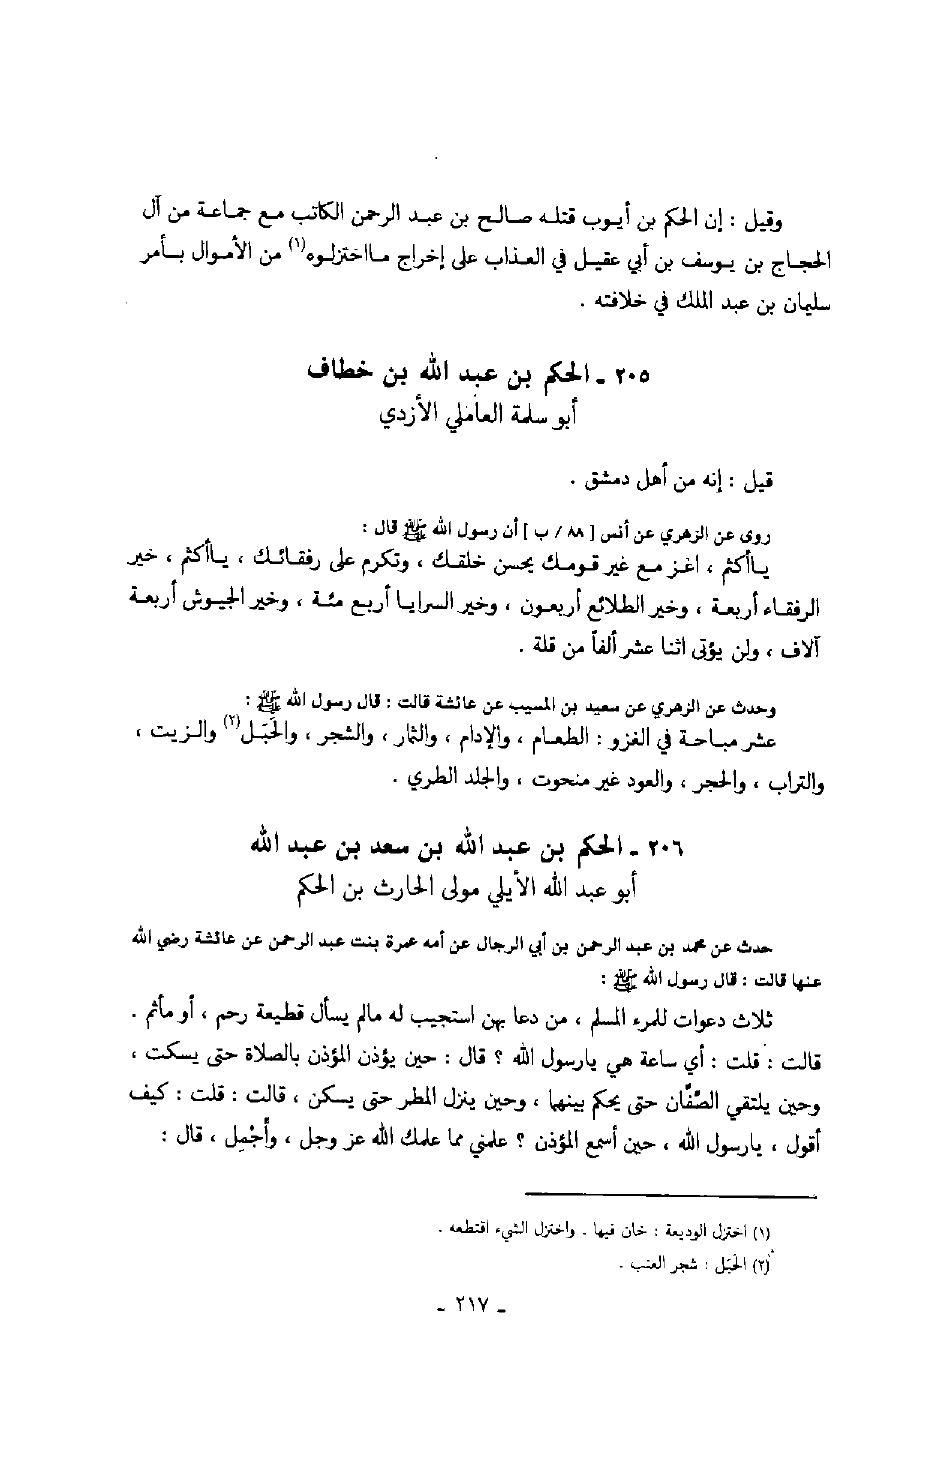 وقيل : إن الحكم بن أيوب قتله صالح بن عبد الرحمن الكاتب مع جماعة من آل
الحجاج بن يوسف بن أبي عقيل في العذاب على إخراج مااختزلوه(١) من الأموال بأمر
سليمان بن عبد الملك في خلافته .
٢٠٥ ـ الحكم بن عبد الله بن خطاف
أبو سلمة العاملي الأزدي
قيل : إنه من أهل دمشق .
روى عن الزهري عن أنس [ ٨٨ / ب ] أن رسول الله ﷺ قال :
ياأكثم ، اغز مع غير قومك يحسن خلقك ، وتكرم على رفقائك ، ياأكثم ، خير
الرفقاء أربعة ، وخير الطلائع أربعون ، وخير السرايا أربع مئة ، وخير الجيوش أربعة
آلاف ، ولن يؤتى اثنا عشر ألفاً من قلة .
وحدث عن الزهري عن سعيد بن المسيب عن عائشة قالت : قال رسول الله ﷺ :
عشر مباحة في الغزو : الطعام ، والإدام ، والثمار ، والشجر ، والحَبَل(٢) والزيت ،
والتراب ، والحجر ، والعود غير منحوت ، والجلد الطري .
٢٠٦ ـ الحكم بن عبد الله بن سعد بن عبد الله
أبو عبد الله الأيلي مولى الحارث بن الحكم
حدث عن محمد بن عبد الرحمن بن أبي الرجال عن أمه عمرة بنت عبد الرحمن عن عائشة رضي الله
عنها قالت : قال رسول الله ﷺ :
ثلاث دعوات للمرء المسلم ، من دعا بهن استجيب له مالم يسأل قطيعة رحم ، أو مأثم .
قالت : قلت : أي ساعة هي يارسول الله ؟ قال : حين يؤذن المؤذن بالصلاة حتى يسكت ،
وحين يلتقي الصَّفَّان حتى يحكم بينهما ، وحين ينزل المطر حتى يسكن ، قالت : قلت : كيف
أقول ، يارسول الله ، حين أسمع المؤذن ؟ علمني مما علمك الله عز وجل ، وأجْمِل ، قال :
(١) اختزل الوديعة : خان فيها . واختزل الشيء اقتطعه .
(٢) الحَبَل : شجر العنب .
ـ ٢١٧ ـ